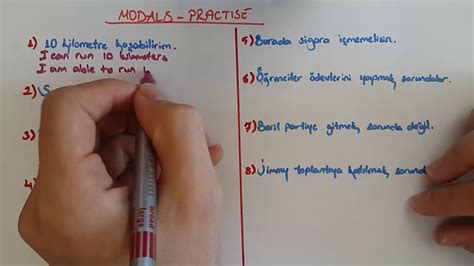 MODALS - PRACTISE
1) 10 kilometre koşabilirim.
I can run 10 kilometers
I am able to run 1
2) S
3)
4)
5) Burada sigara içmemelisin.
6) Öğrenciler ödevlerini yapmak zorundalar.
7) Beril partiye gitmek zorunda değil.
8) Jimmy toplantıya katılmak zorund